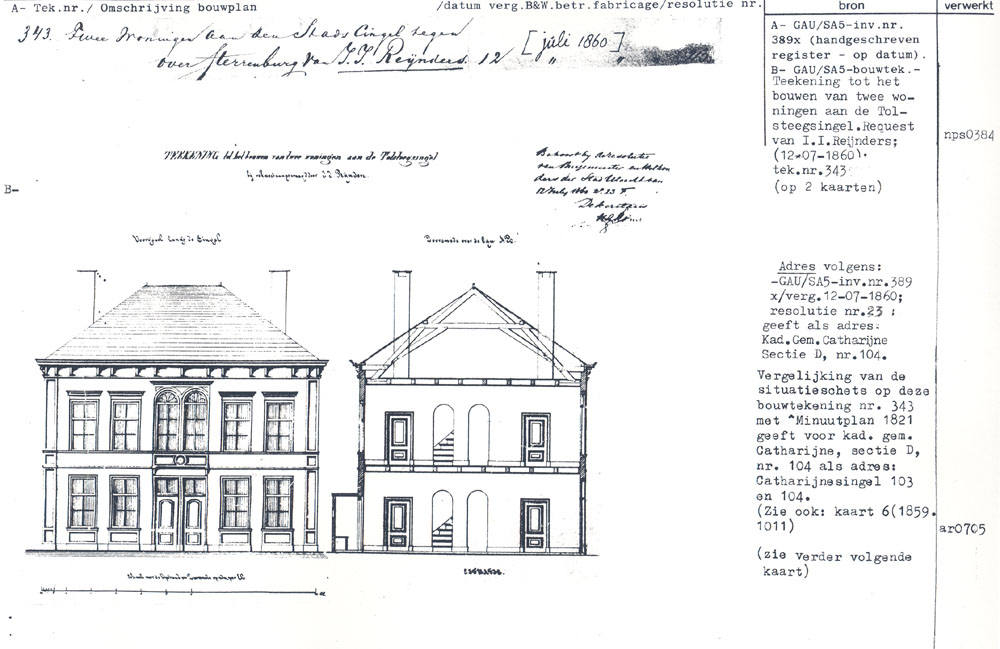 A- Tek.nr./ Omschrijving bouwplan
/datum verg.B&W.betr.fabricage/resolutie nr.
bron
verwerkt
343. Twee Woningen aan den Stads Cingel tegen
over Sterrenburg van J.J. Reijnders. 12 "
[juli 1860]
"
A- GAU/SA5-inv.nr.
389x (handgeschreven
register - op datum).
B- GAU/SA5-bouwtek.-
Teekening tot het
bouwen van twee wo-
ningen aan de Tol-
steegsingel.Request
van I.I.Reijnders;
(12-07-1860).
tek.nr.343
(op 2 kaarten)
nps0384
B-
TEEKENING tot het bouwen van twee woningen aan de Tolsteegsingel
J.J. Reijnders.
Behoort bij de resolutie
van Burgemeester en Wethou
ders der Stad Utrecht van
12 July 1860 No 23 F.
De Secretaris
Voorgevel langs de Cingel
Doorsnede over de lijn
Adres volgens:
-GAU/SA5-inv.nr.389
x/verg.12-07-1860;
resolutie nr.23 :
geeft als adres:
Kad.Gem.Catharijne
Sectie D, nr.104.
Vergelijking van de
situatieschets op deze
bouwtekening nr. 343
met ^Minuutplan 1821
geeft voor kad. gem.
Catharijne, sectie D,
nr. 104 als adres:
Catharijnesingel 103
en 104.
(Zie ook: kaart 6(1859.
1011)
ar0705
(zie verder volgende
kaart)